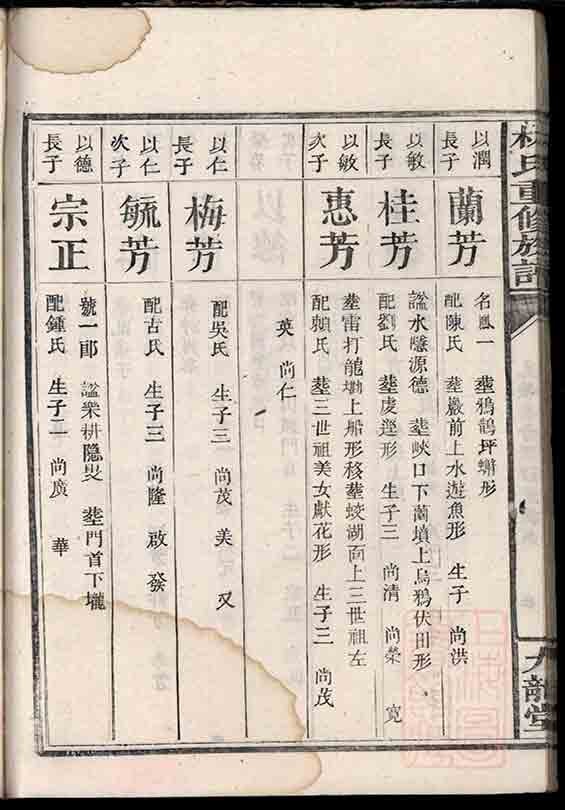 林氏重修族譜
九龍堂
以潤
長子
蘭芳
名鳳一 塟鴉鵲坪蠏形
配陳氏 塟嚴前上水遊魚形 生子 尚洪
以敏
長子
桂芳
謚水 源德 塟峽口下蘭墳上烏鴉伏田形
配劉氏 塟虔 形 生子三 尚清 尚榮 寬
以敏
次子
惠芳
塟雷打龍 上船形移塟蛟湖面上三世祖左
配賴氏 塟三世祖美女獻花形 生子三 尚茂
英 尚仁
以仁
長子
梅芳
配吳氏 生子三 尚茂 美 又
以仁
次子
毓芳
配古氏 生子三 尚隆 啟 發
以德
長子
宗正
號一郎 謚樂耕隱叟 塟門首下壠
配鍾氏 生子二 尚廣 華